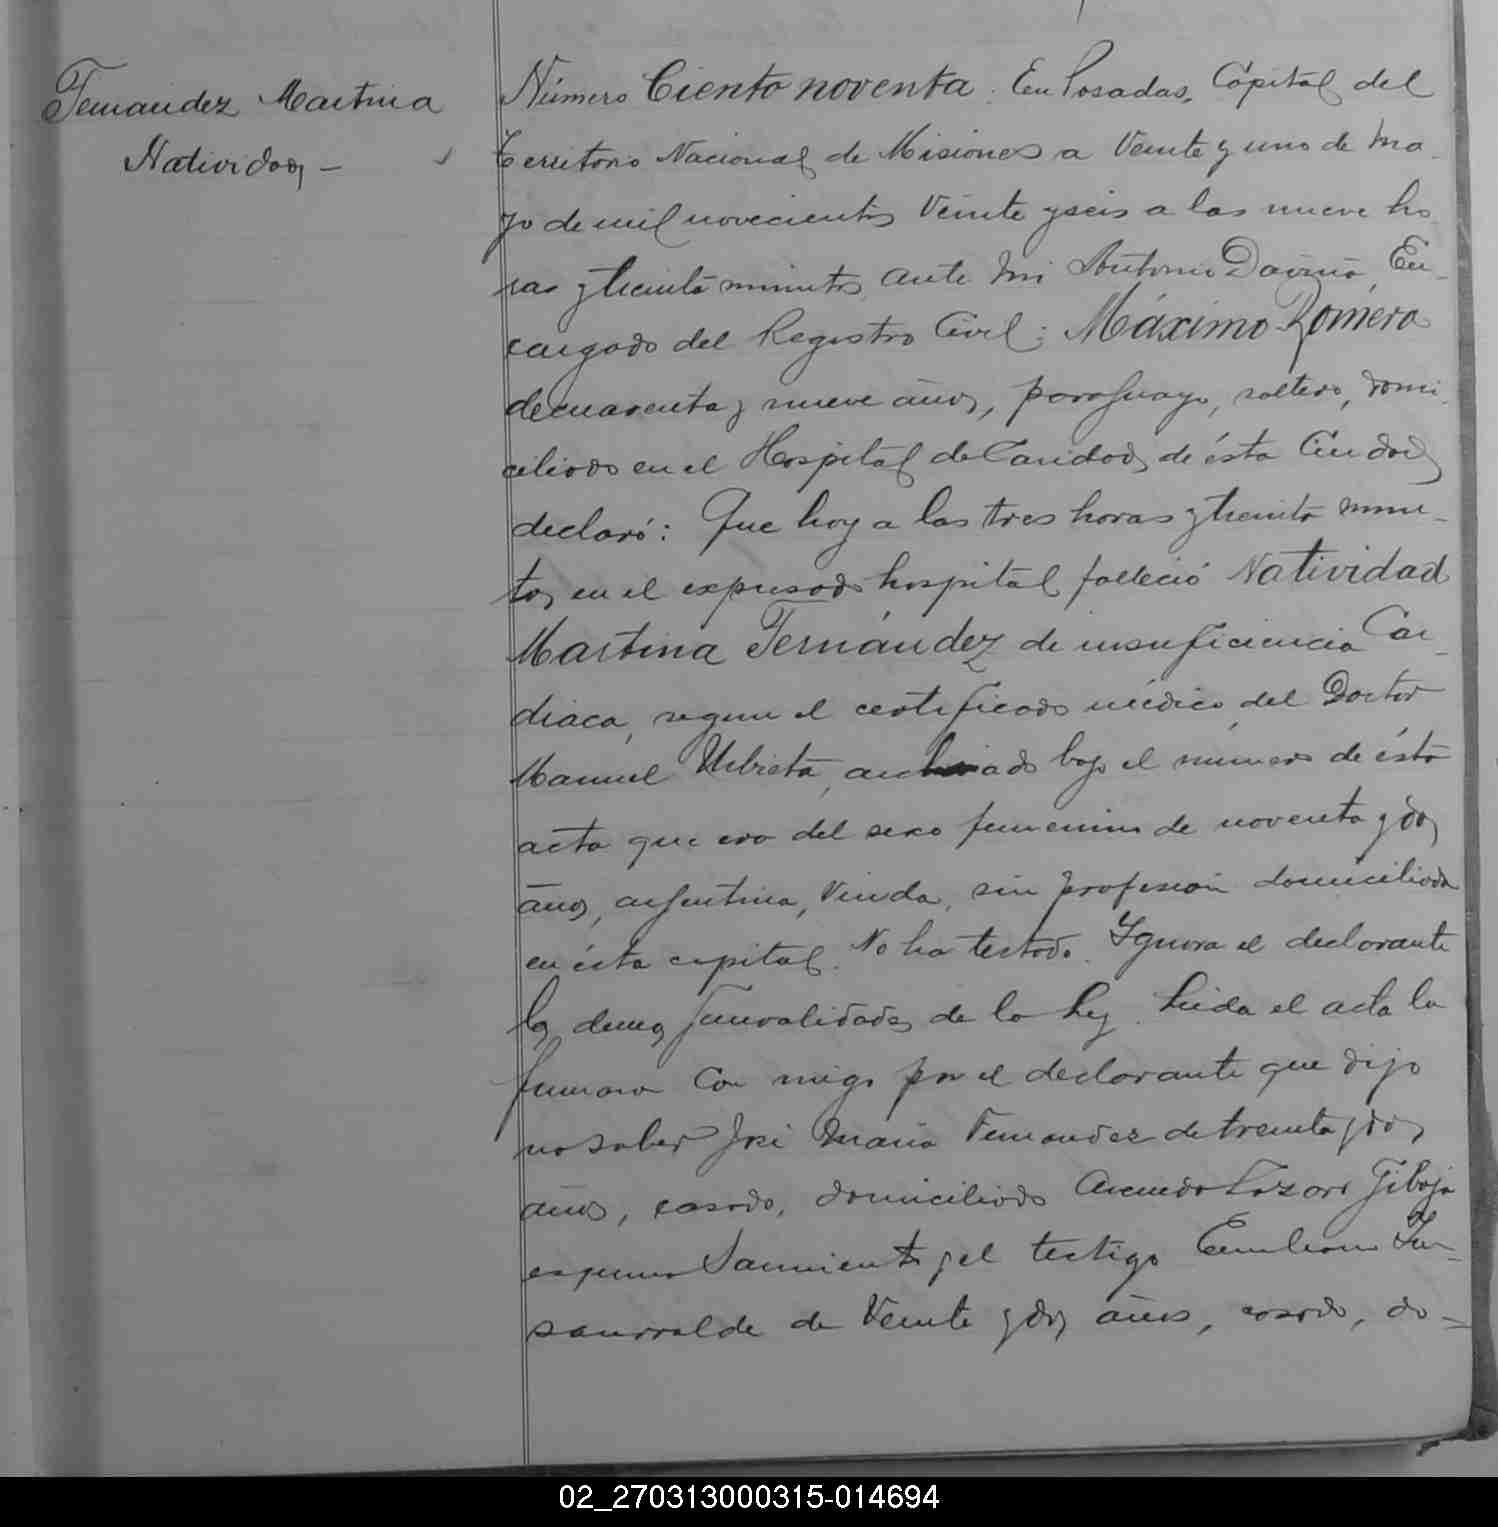 Fernandez Martina
Natividad —
Número Ciento noventa. En Posadas, Capital del
Territorio Nacional de Misiones a Veinte y uno de Ma-
yo de mil novecientos Veinte y seis a las nueve ho
ras y treinta minutos, ante mi Antonio Daviña, En-
cargado del Registro Civil: Máximo Romero
de cuarenta y nueve años, paraguayo, soltero, domi-
ciliado en el Hospital de Caridad de ésta Ciudad
declaró: Que hoy a las tres horas y treinta minu-
tos en el expresado hospital falleció Natividad
Martina Fernández de insuficiencia Car-
diaca, segun el certificado médico del Doctor
Manuel Urbieta, archivado bajo el número de ésta
acta que era del sexo femenino de noventa y dos
años, argentina, Viuda, sin profesion domiciliada
en ésta capital. No ha testado. Ygnora el declarante
las demas generalidades de la Ley. Leida el acta la
firmaron con migo por el declarante que dijo
no saber José Maria Fernandez de treinta y dos
años, casado, domiciliado Avenida Lazaro Giboja
esquina Sarmiento y el testigo Emiliano In-
saurralde de Veinte y dos años, casado, do-
02_270313000315-014694